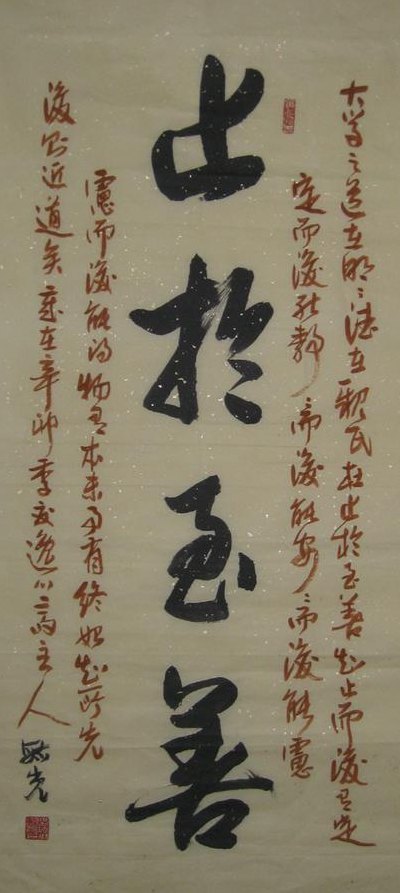 大學之道在明〻德在親民在止於至善知止而後有定
定而後能靜〻而後能安〻而後能慮
止於至善
慮而後能得物有本末事有終始知所先
後則近道矣歲在辛卯季夏主人